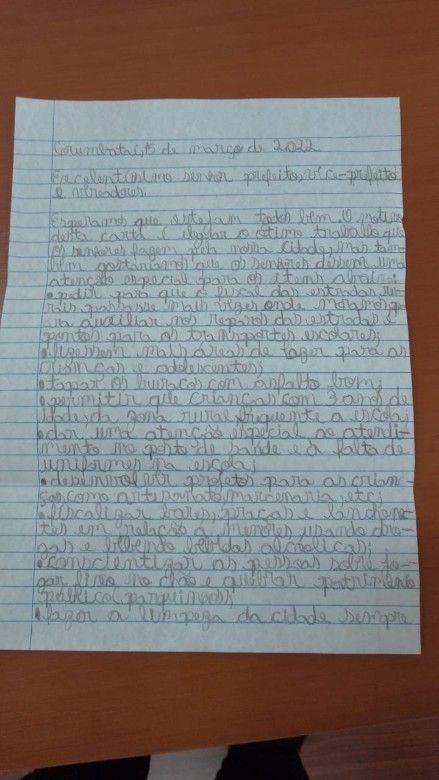 Corumbataí, 15 de março de 2.022
Excelentíssimo senhor prefeito, vice-prefeito
e vereadores.
Esperamos que estejam todos bem. O motivo
desta carta é elogiar o ótimo trabalho que
os senhores fazem pela nossa cidade, mas tam-
bém gostaríamos que os senhores dessem uma
atenção especial para os itens abaixo:
• pedir para que o fiscal das estradas ru-
rais passasse mais vezes onde moramos pa-
ra auxiliar nos reparos das estradas e
pontos para os transportes escolares;
• fizessem mais áreas de lazer para as
crianças e adolescentes;
• tapar os buracos com asfalto bom;
• permitir que crianças com 3 anos de
idade, da zona rural frequente a escola;
• dar uma atenção especial ao atendi-
mento no posto de saúde e à falta de
uniformes na escola;
• desenvolver projetos para as crian-
ças como artesanato, marcenaria, etc;
• fiscalizar bares, praças e lancho
tes em relação à menores, usando dro-
gas e bebendo bebidas alcoólicas;
• conscientizar as pessoas sobre jo-
gar lixo no chão e quebrar patrimônio
público (parquinhos);
• fazer a limpeza da cidade sempre